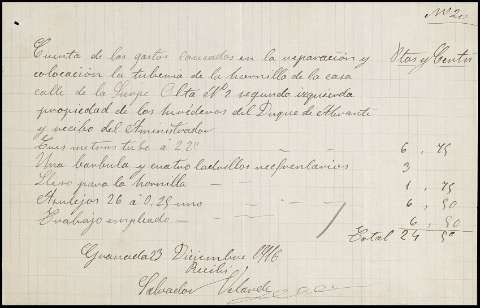 Nº 20
Cuenta de los gastos causados en la reparación y Ptas y Centms
colocación la tuberia de la hornilla de la casa
calle de la Jaspe Alta Nº 3 segundo izquierda
propiedad de los herederos del Duque de Abrante
y recibo del Aministrador
Tres metros tubo á 225 6,75
Una barbula y cuatro ladrillos 3
Llave para la hornilla 1,75
Azulejos 26 á 0.25 uno 6,50
Trabajo empleado 6,50
Total 24 50
Granada 23 Diciembre 1916
Recibi
Salvador Velarde